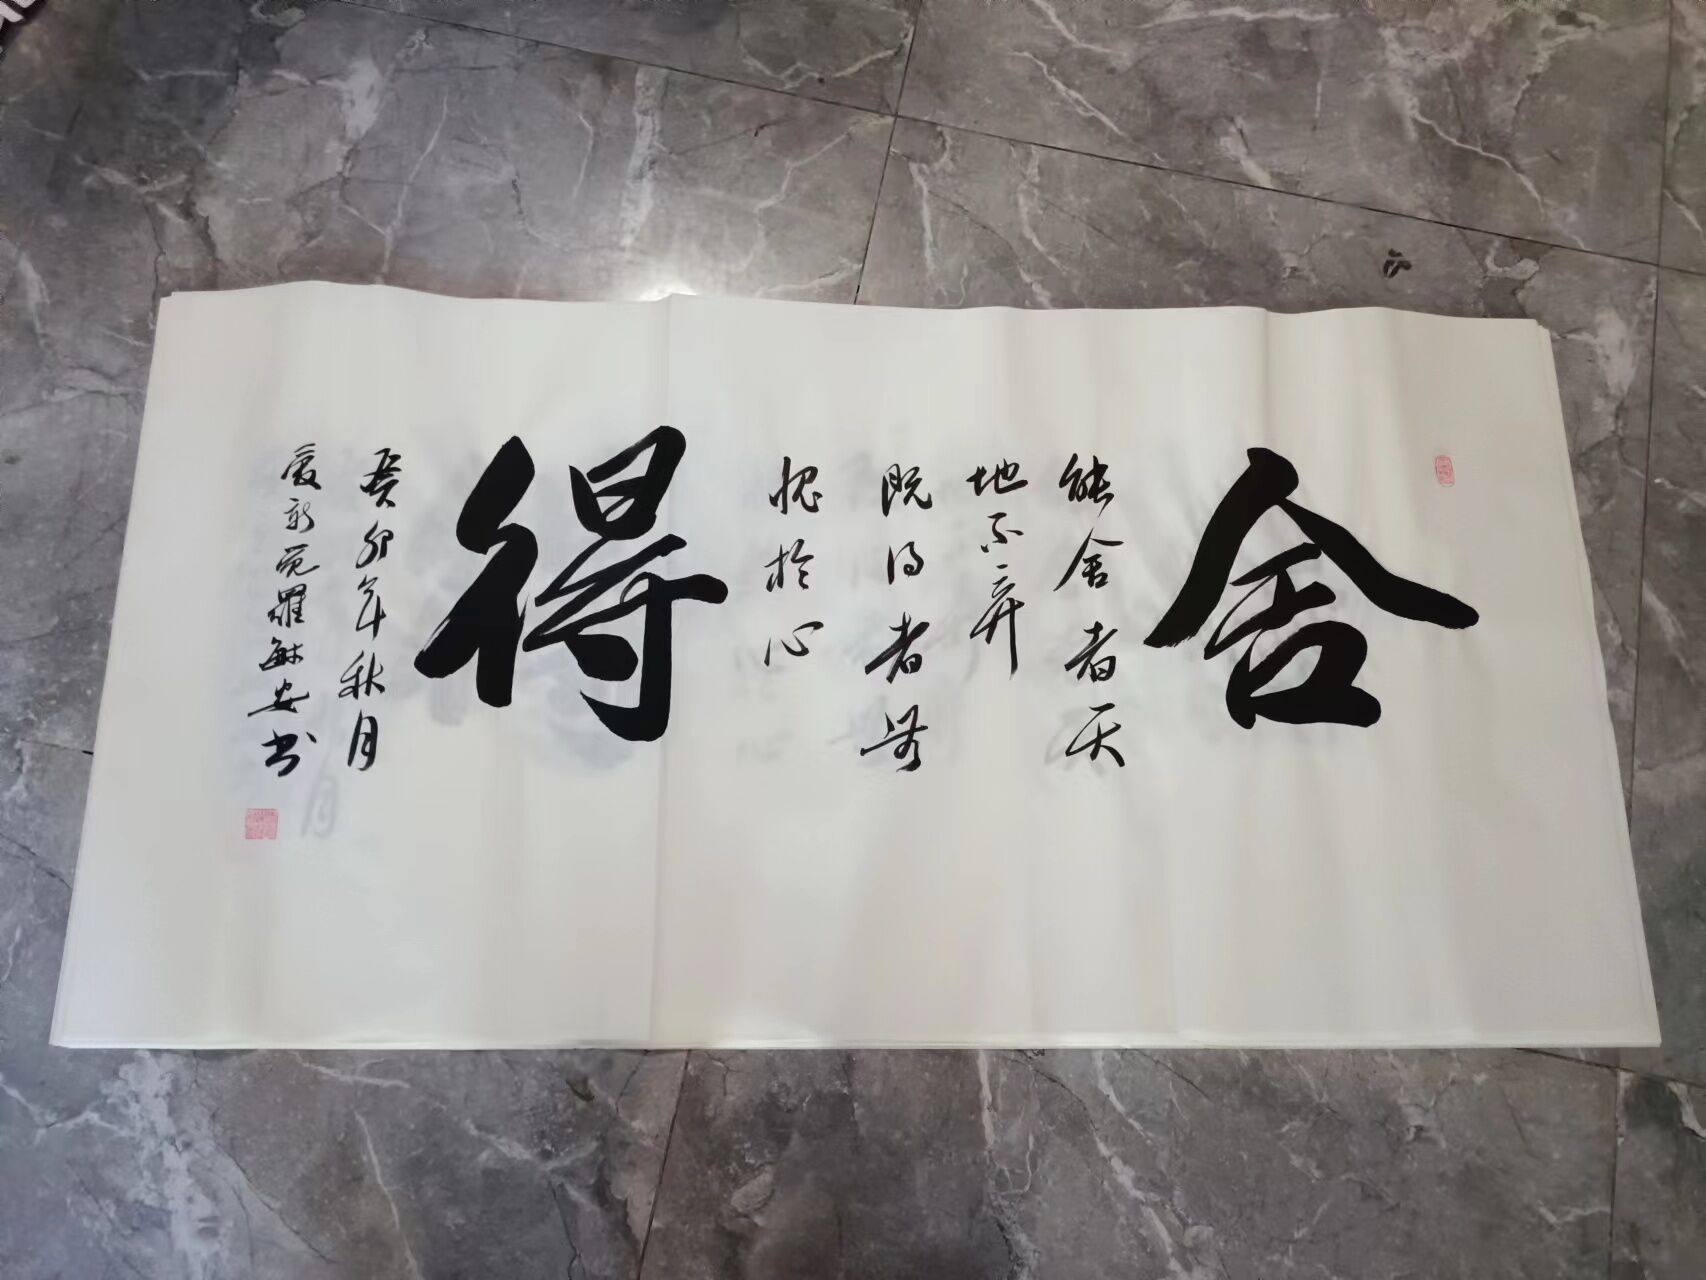 舍
能舍者天
地不弃
既得者无
愧於心
得
癸卯年秋月
爱新觉罗毓安书